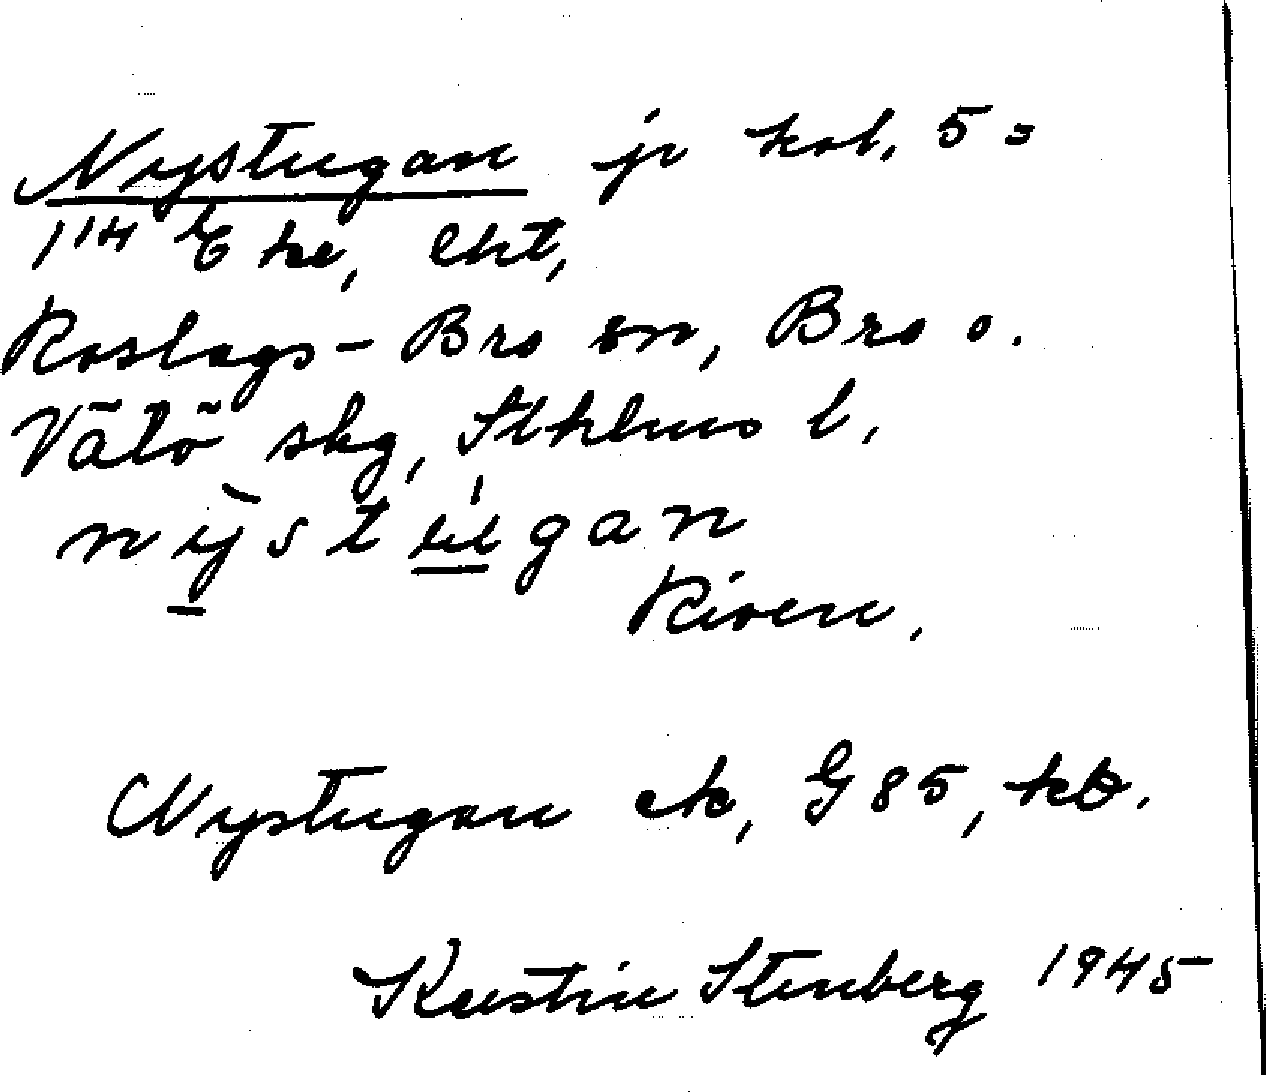 Nystugan jr kol. 5 =
1¹⁴ Eke, ekt,
Roslags-Bro sn, Bro o.
Vätö skg, Sthlms l,
nystugan
Riven.
Nystugan ek, G85, kb.
Kerstin Stenberg 1945